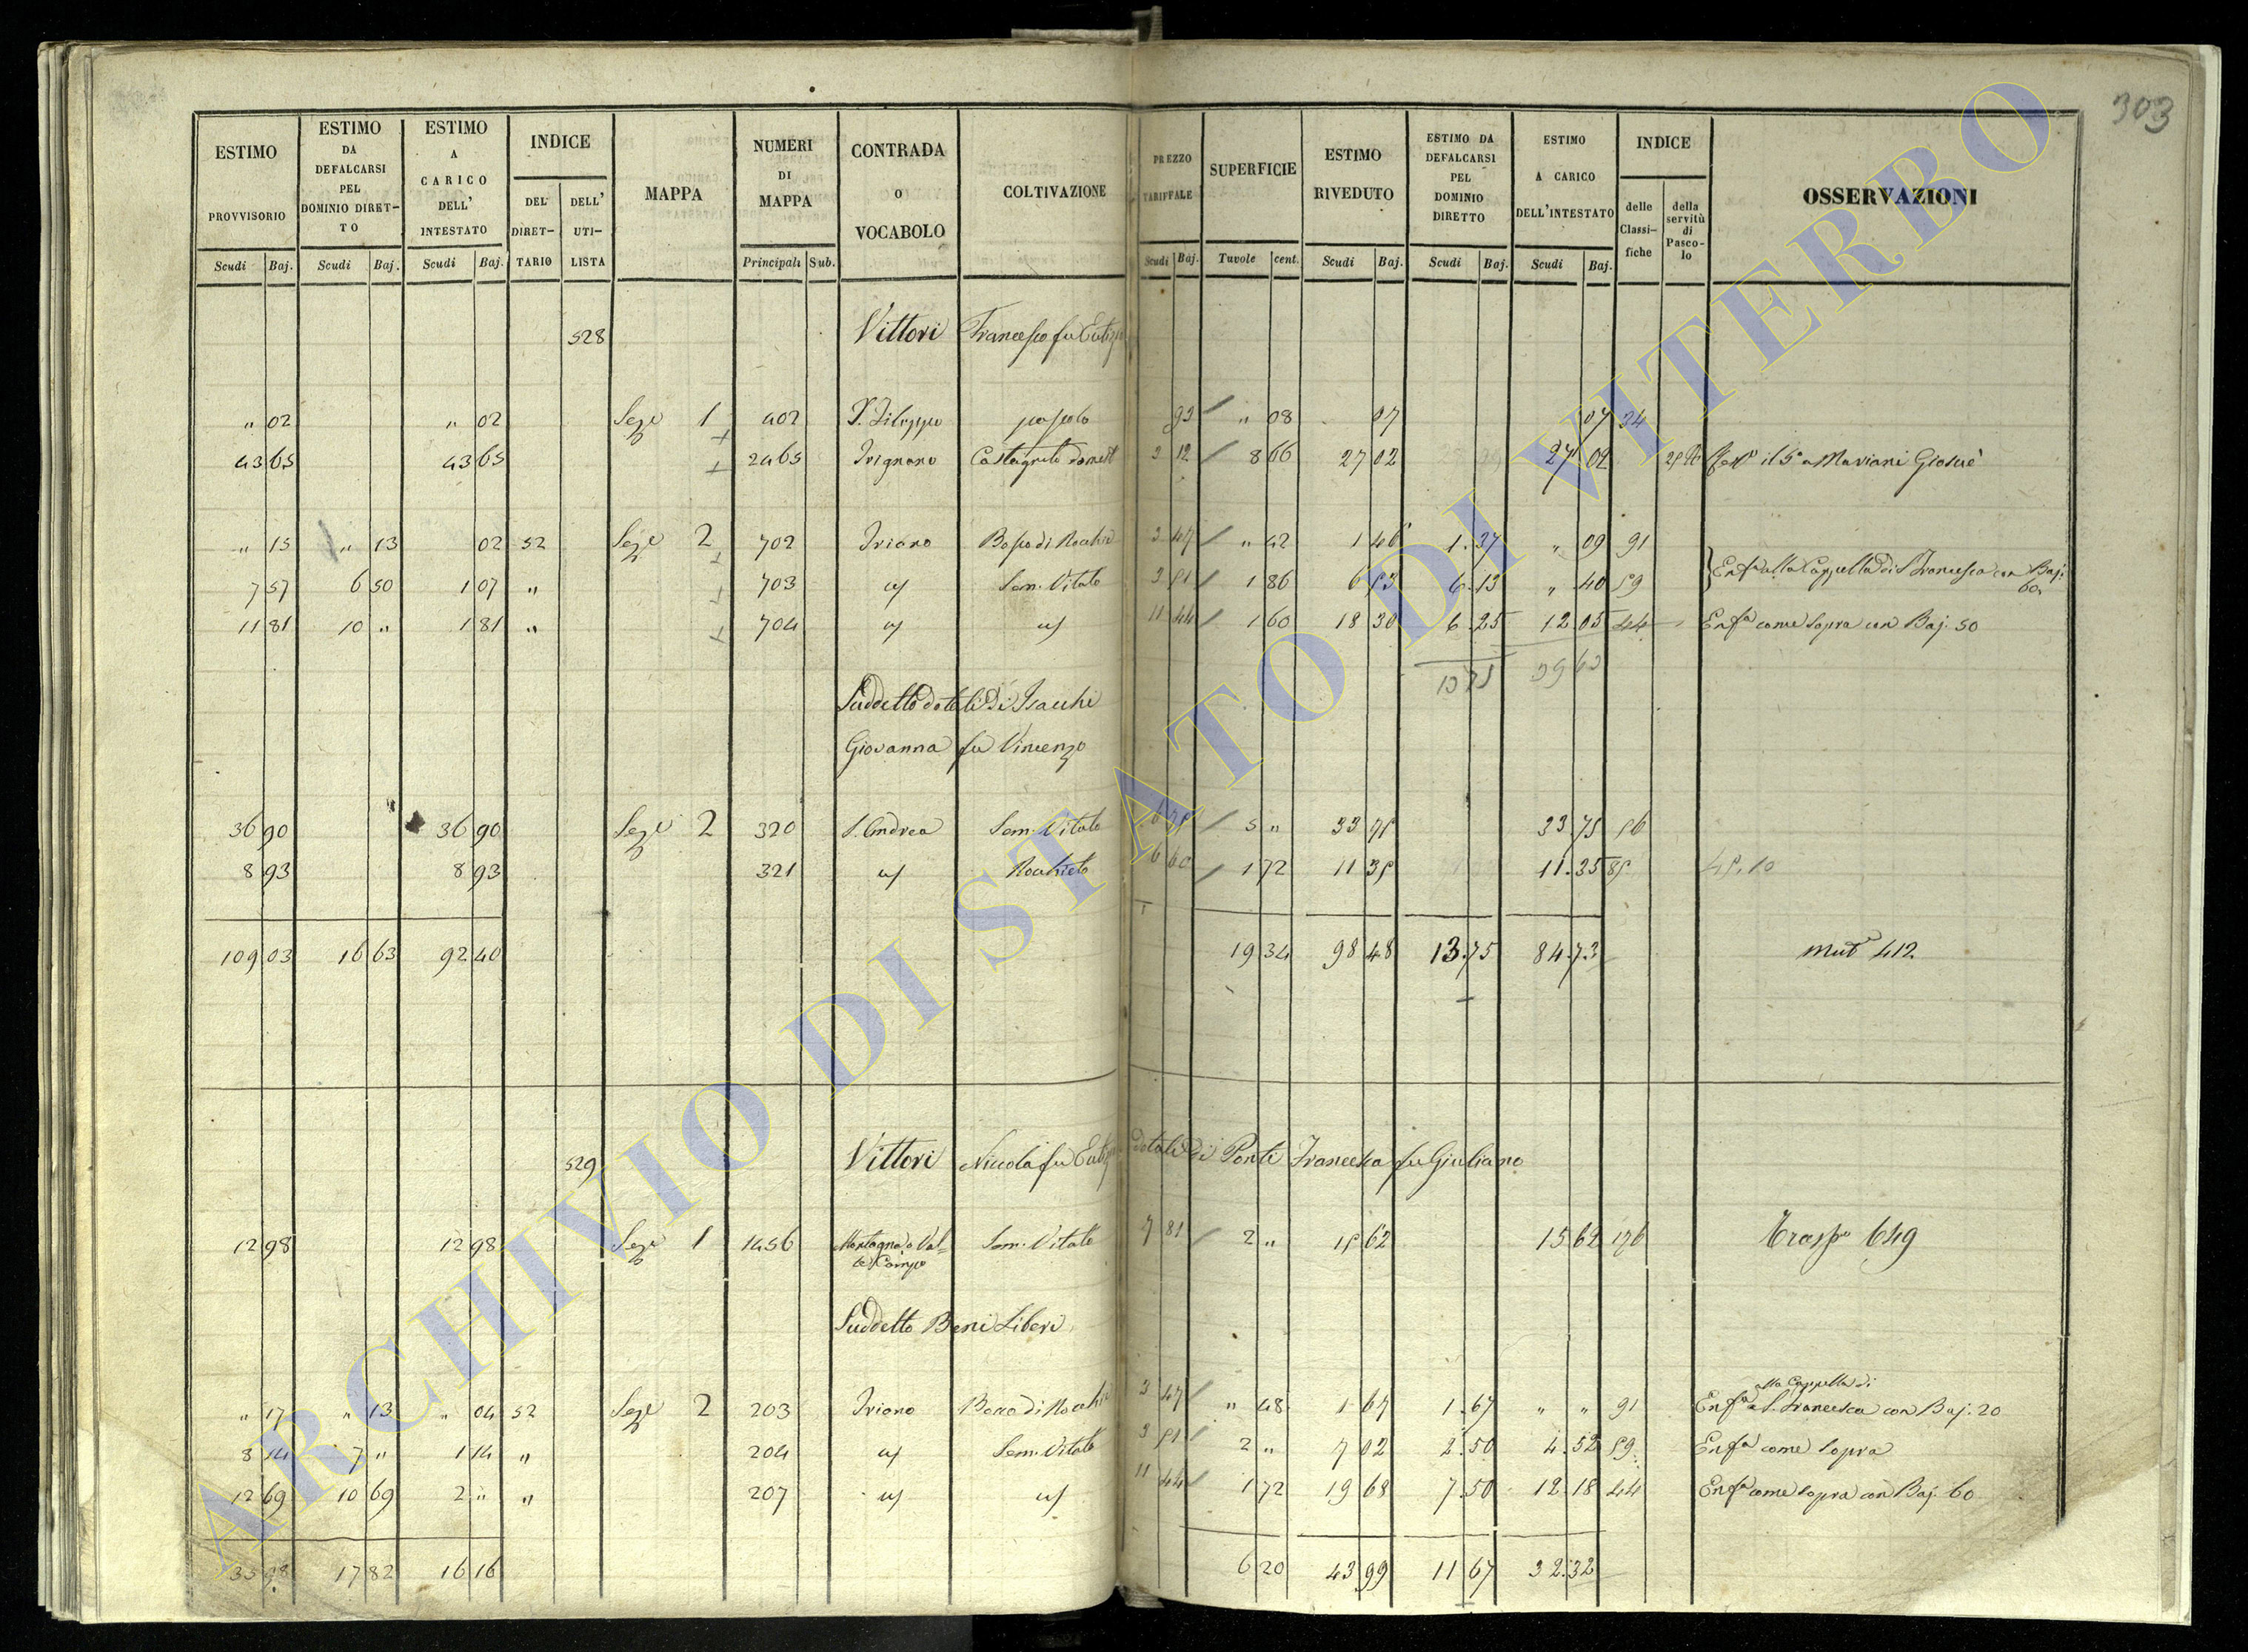 303
ESTIMO PROVVISORIO Scudi Baj.
ESTIMO DA DEFALCARSI PEL DOMINIO DIRET-TO Scudi Baj.
ESTIMO A CARICO DELL' INTESTATO Scudi Baj.
INDICE DEL DIRET-TARIO DELL' UTI-LISTA
MAPPA
NUMERI DI MAPPA Principali Sub.
CONTRADA O VOCABOLO
COLTIVAZIONE
PREZZO TARIFFALE Scudi Baj.
SUPERFICIE Tavole cent.
ESTIMO RIVEDUTO Scudi Baj.
ESTIMO DA DEFALCARSI PEL DOMINIO DIRETTO Scudi Baj.
ESTIMO A CARICO DELL'INTESTATO Scudi Baj.
INDICE delle Classi-fiche della servitù di Pasco-lo
OSSERVAZIONI
528 Vittori Francesco fu
" 02 " 02 Sez.e 1 402 S. Filippo pascolo " 08 07 07 34
43 65 43 65 2465 Trignano Castagneto 3 12 8 66 27 02 27 02 il 5° a Mariani Giosuè
" 15 " 13 02 52 Sez.e 2 702 Triano Bosco di 3 47 " 42 1 46 1.37 " 09 91
7 57 6 50 1 07 " 703 Sem. Vitato 3 51 1 86 6 53 6.13 " 40 59 Enf.a alla Cappella di S. Francesca con Baj. 60
11 81 10 " 1 81 " 704 11 44 1 60 18 30 6.25 12.05 44 Enf.a come Sopra con Baj. 50
13 75 39 63
Suddetto dotali di Isacchi
Giovanna fu Vincenzo
36 90 36 90 Sez.e 2 320 S. Andrea Sem. Vitato 6 75 5 " 33 75 33.75 56
8 93 8 93 321 6 60 1 72 11 35 11.35 85 45.10
109 03 16 63 92 40 19 34 98 48 13.75 84.73 mut 412
529 Vittori Niccola fu dotali di Ponti Francesca fu Giuliano
12 98 12 98 Sez.e 1 1456 Montagna o Val-le Campo Sem. Vitato 7 81 2 " 15 62 15 62 176 Trasp.o 649
Suddetto Beni Liberi
" 17 " 13 " 04 52 Sez.e 2 203 Triano Bosco di 3 47 " 48 1 67 1.67 " " 91 Enf.a alla Cappella di S. Francesca con Baj. 20
8 14 7 " 1 14 " 204 Sem. Vitato 3 51 2 " 7 02 2.50 4.52 59 Enf.a come Sopra
12 69 10 69 2 " " 207 11 44 1 72 19 68 7.50 12.18 44 Enf.a come Sopra con Baj. 60
33 98 17 82 16 16 6 20 43 99 11 67 32.32
ARCHIVIO DI STATO DI VITERBO